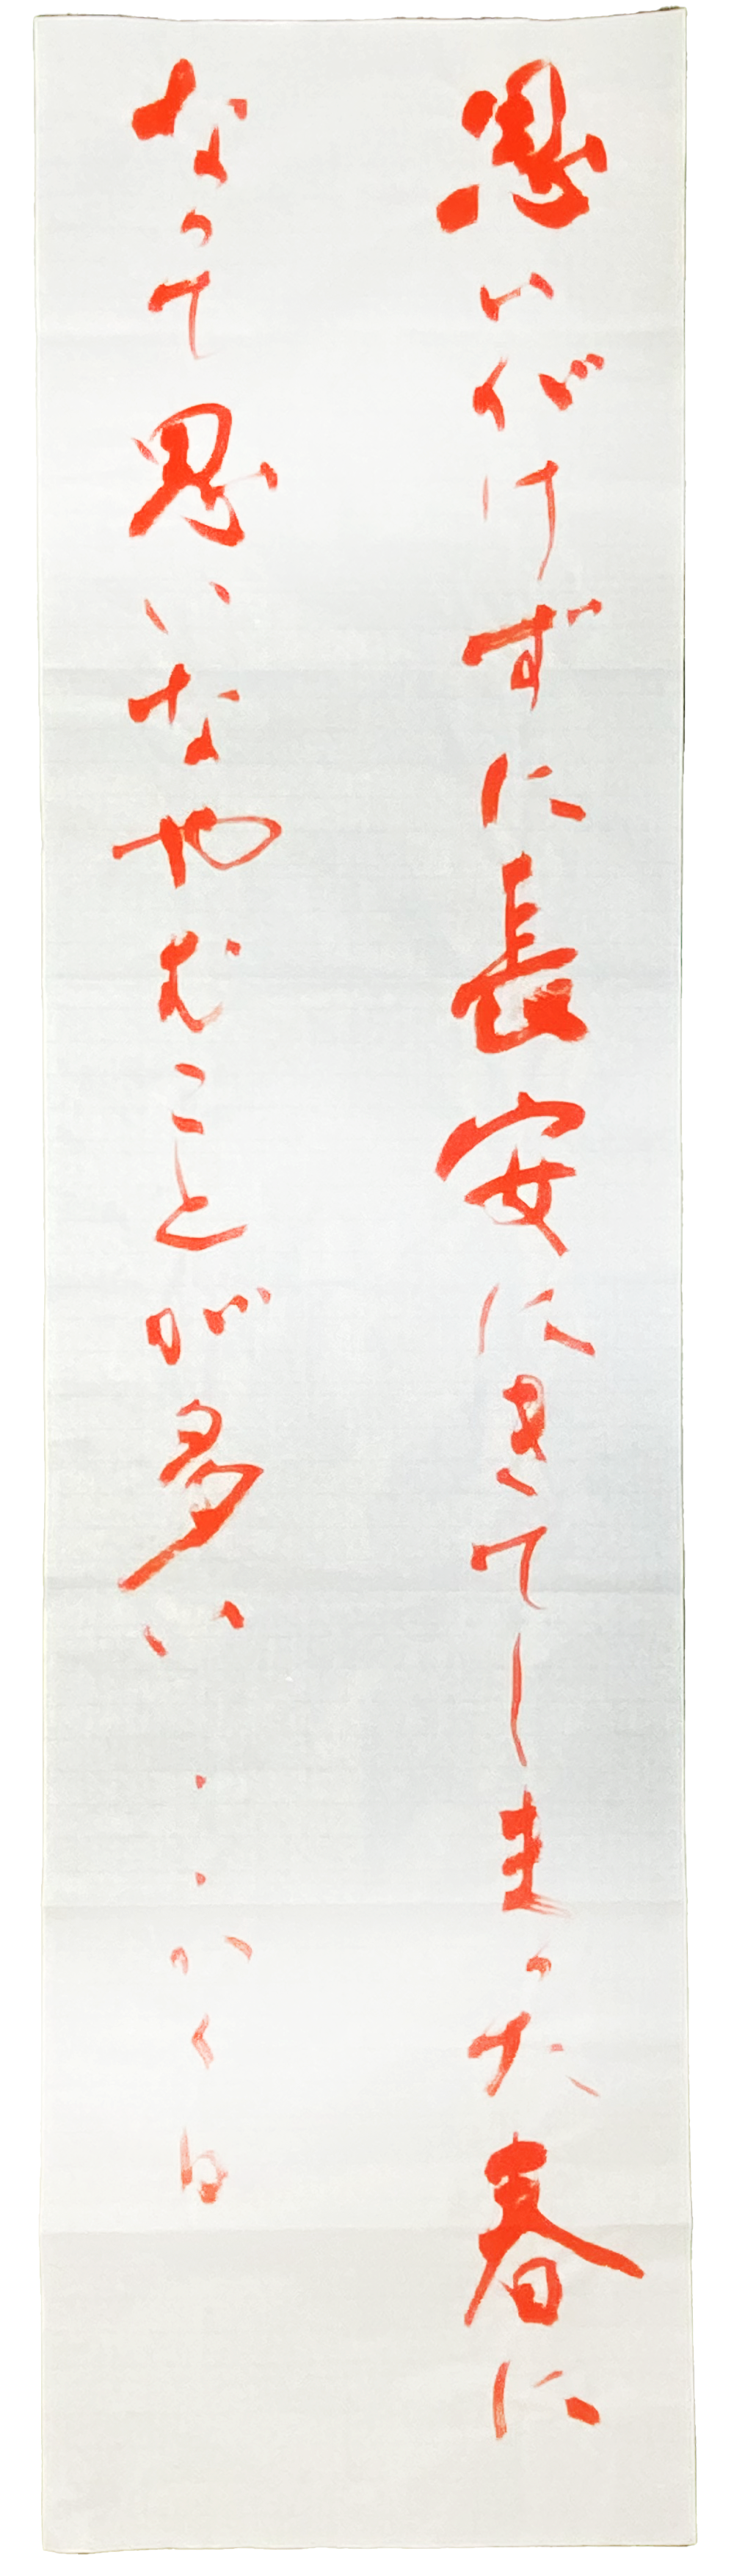 思いがけずに長安にきてしまった春に
なって思いなやむことが多い：かくは